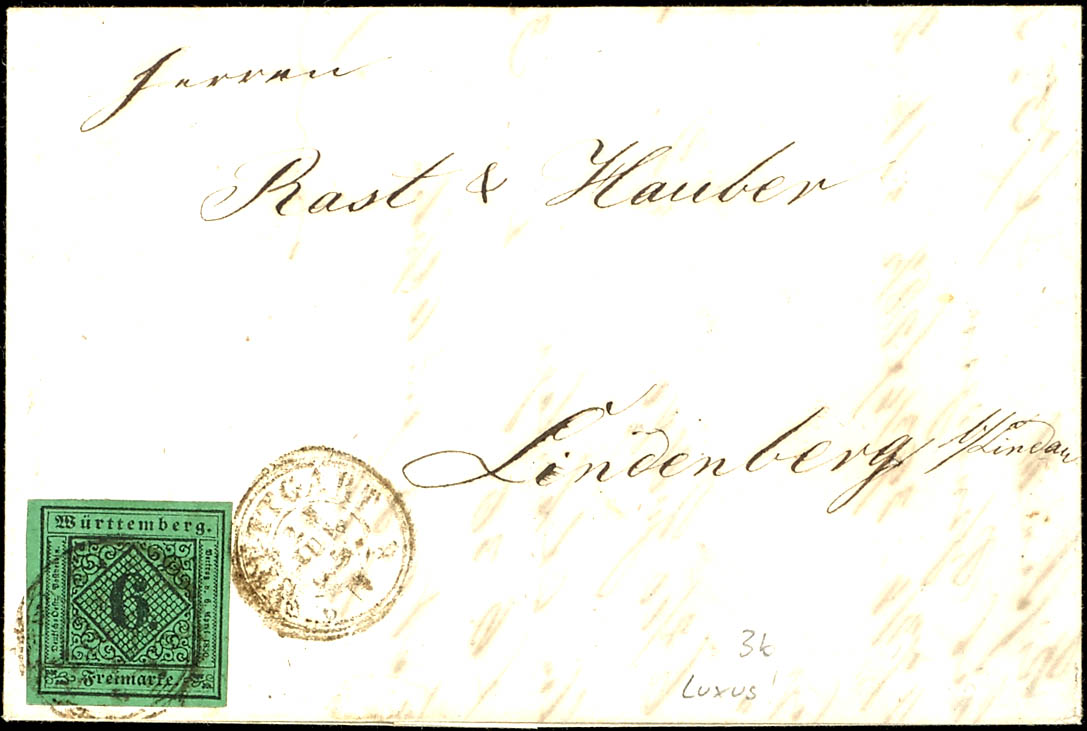 Herren
Rast & Hauber
Lindenberg b/Lindau
STUTTGART
Württemberg.
6
Freimarke.
3k
Luxus